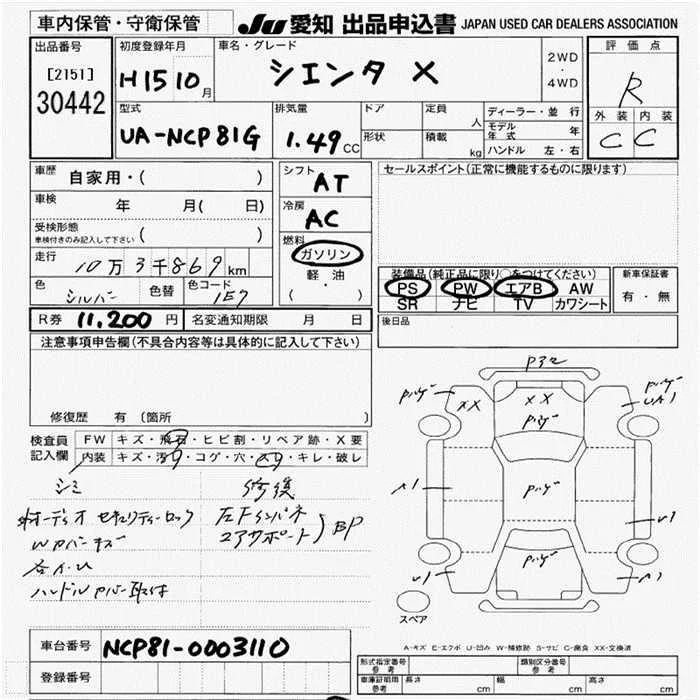 車内保管・守衛保管
JU 愛知 出品申込書 JAPAN USED CAR DEALERS ASSOCIATION
出品番号
[2151]
30442
初度登録年月
H15 10月
車名・グレード
シエンタ X
2WD
・
4WD
評価点
R
外装 内装
C C
型式
UA-NCP81G
排気量
1.49 CC
ドア
形状
定員
人
積載
kg
ディーラー・並行
モデル年式 年
ハンドル 左・右
車歴
自家用・( )
車検
年 月( 日)
受検形態
車検付きのみ記入して下さい ( )
走行
10万3千869km
色
シルバー
色替
色コード
1E7
シフト
AT
冷房
AC
燃料
ガソリン
軽油
( ・ )
セールスポイント(正常に機能するものに限ります)
装備品(純正品に限り○をつけてください)
PS PW エアB AW
SR ナビ TV カワシート
新車保証書
有・無
R券 11,200 円
名変通知期限 月 日
後日品
注意事項申告欄(不具合内容等は具体的に記入して下さい)
修復歴 有(箇所 )
検査員
記入欄
FW キズ・飛石・ヒビ割・リペア跡・X要
内装 キズ・汚れ・コゲ・穴・スレ・キレ・破レ
シミ
オーディオ セキュリティーロック
ハンドルカバー取付
修復
左Fインパネ
コアサポート
BP
XX
XX
A1
スペア
A-キズ E-エクボ U-凹み W-補修跡 S-サビ C-腐食 XX-交換済
車台番号 NCP81-0003110
登録番号
形式指定番号
参考
類別区分番号
参考
車庫証明用
参考
長さ cm
幅 cm
高さ cm